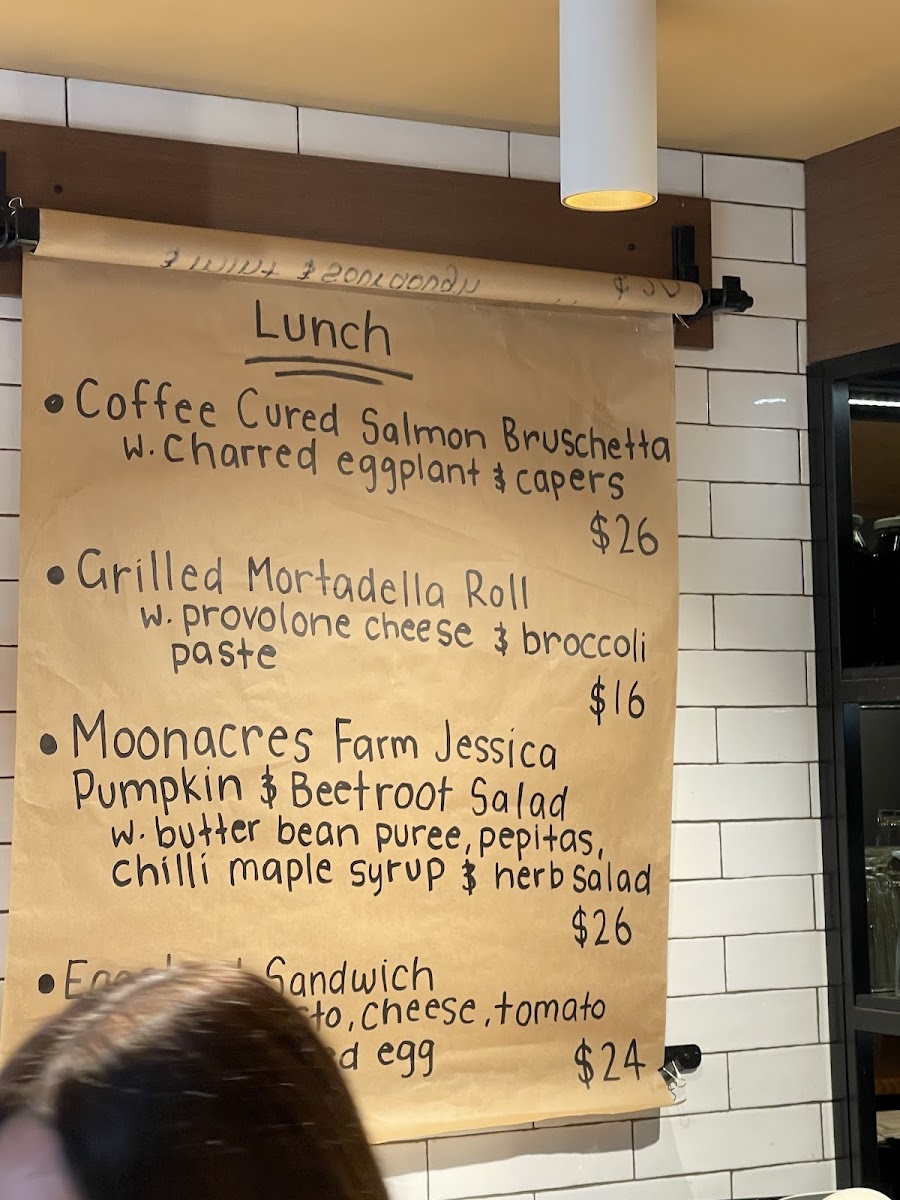 Lunch
• Coffee Cured Salmon Bruschetta
w. Charred eggplant & capers
$26
• Grilled Mortadella Roll
w. provolone cheese & broccoli
paste
$16
• Moonacres Farm Jessica
Pumpkin & Beetroot Salad
w. butter bean puree, pepitas,
chilli maple syrup & herb salad
$26
• Sandwich
cheese, tomato
egg $24